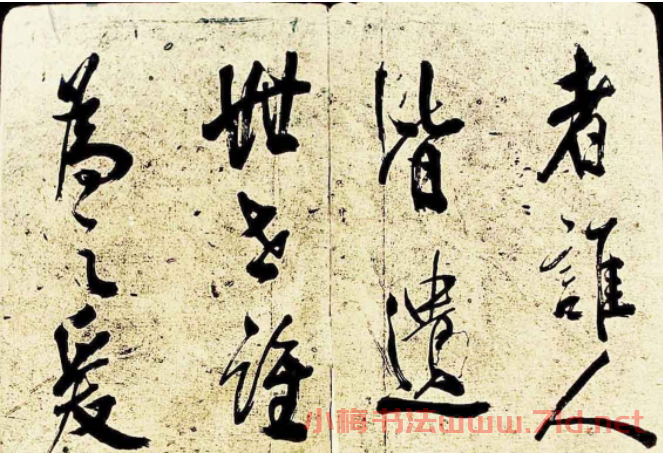 者誰人
皆遺
世誰
為之
小梅书法www.7ld.net